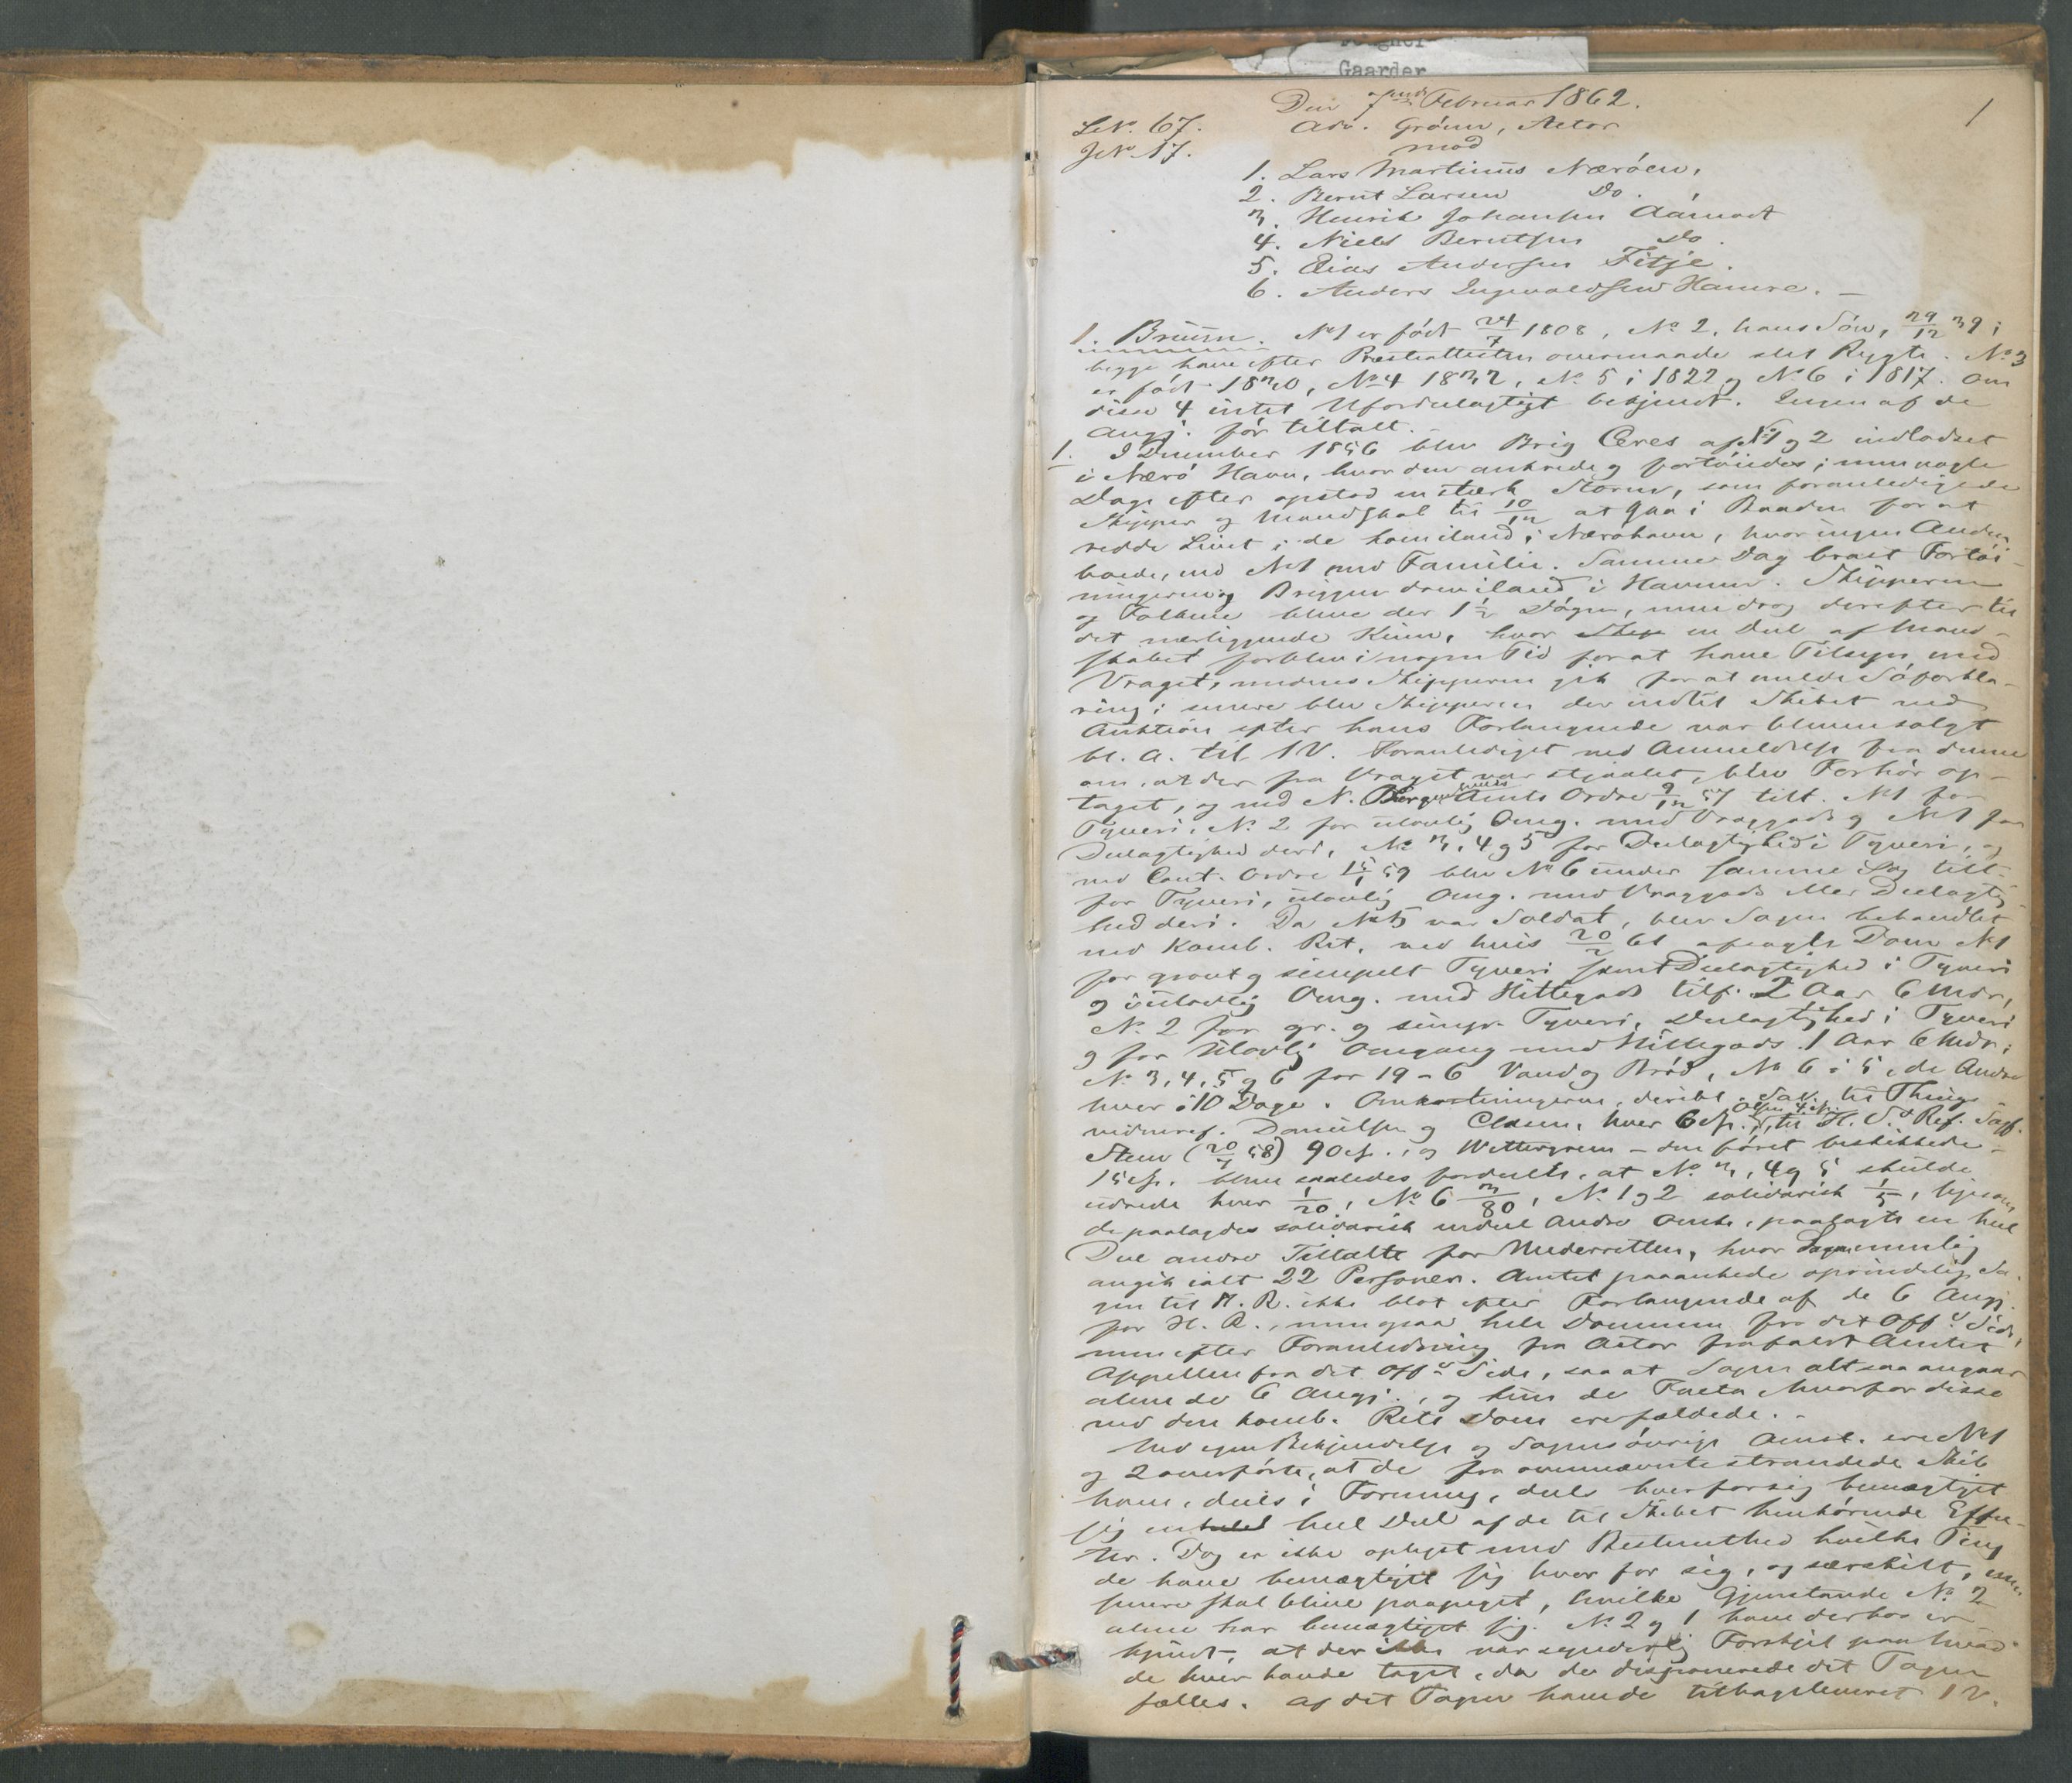 Gaarder
1
Den 7de Februar 1862.
LNo. 67. Adv. Grönn, Actor
JNo 17. mod
1. Lars Martinus Næröen,
2. Bernt Larsen Do.,
3. Henrik Johansen Aarnæs
4. Niels Berntsen Do.
5. Elias Andersen Fitje.
6. Anders Ingevaldsen Hamre. –
1. Bruun. No 1 er födt 24/7 1808, No 2, hans Sön, 29/12 39;
begge have efter Præsteattesten overmaade slet Rygte. No 3
er födt 1830, No 4 1832, No 5 i 1822 og No 6 i 1817. Om
disse 4 intet Ufordelagtigt bekjendt. Ingen af de
Angj. för tiltalt. –
1. I December 1856 blev Brig Ceres af No 1 og 2 indlodset
i Nærö Havn, hvor den ankrede og fortöiedes; men nogle
Dage efter opstod en stærk Storm, som foranledigede
Skipper og Mandskab til 10/12 at gaa i Baaden for at
redde Livet; de kom iland i Næröhavn, hvor ingen Anden
boede, end No 1 med Familie. Samme Dag brast Fortöi-
ningerne og Briggen drev iland i Havnen. Skipperen
og Folkene bleve der 1½ Dögn, men drog derefter til
det nærliggende Kinn, hvor en Deel af Mand-
skabet forblev i nogen Tid for at have Tilsyn med
Vraget, medens Skipperen gik for at melde Söforkla-
ring; senere blev Skipperen der indtil Skibet ved
Auktion efter hans Forlangende var blevne solgt
bl. A. til 1 V. Foranlediget ved Anmeldelse fra denne
om, at der fra Vraget var stjaalet, blev Forhör op-
taget, og ved N. Bergenhuus Amts Ordre 9/12 57 tilt. No 1 for
Tyveri, No 2 for ulovlig Omg. med Vraggods og No 1 for
Deelagtighed deri, No 3, 4 og 5 for Deelagtighed i Tyveri, og
ved Cont. Ordre 15/1 59 blev No 6 under samme Sag tilt.
for Tyveri, ulovlig Omg. med Vraggods eller Deelagtig-
hed deri. Da No 5 var Soldat, blev Sagen behandlet
ved Komb. Ret, ved hvis 20/2 61 afsagte Dom No 1
for grovt og simpelt Tyveri samt Deelagtighed i Tyveri
og ulovlig Omg. med Hittegods tilf. 2 Aar 6 Mdr.,
No. 2 for gr. og simp. Tyveri, Deelagtighed i Tyveri
og for Ulovlig Omgang med Hittegods 1 Aar 6 Mdr;
No 3, 4, 5 og 6 for 19 – 6 Vand og Bröd, No 6 i 5, de Andre
hver i 10 Dage. Omkostningerne, deribl. Sal. til Things
vidneref. Danielsen og Clasen, hver 6 Sp., til H. S. & Ref. Sagf.
Steen (20/7 58) 90 Sp., og Wettergreen – den föret beskikkede –
15 Sp. bleve saaledes fordeelte, at No. 3, 4 og 5 skulde
udrede hver 1/20, No. 6 3/80, No. 1 og 2 solidarisk 1/5, ligesom
de paalagdes solidarisk endeel Andre Omk., paalagte en heel
Deel andre Tiltalte for Underretten, hvor Sagen nemlig
angik ialt 22 Personer. Amtet paaankede oprindelig Sa-
gen til H. R. ikke blot efter Forlangende af de 6 Angj.
for H. R., men ogsaa hele Dommen fra det Offs Side,
men efter Foranledning fra Actor frafaldt Amtet
Appellen fra det Offs Side, saa at Sagen altsaa angaar
alene de 6 Angj., og kun de Facta hvorfor disse
ved den komb. Rets Dom ere fældede. –
Ved egen Bekjendelse og Sagens övrige Omst. ere No 1
og 2 overförte, at de fra ovennævnte strandede Skib
have, deels i Forening, deels hver for sig bemægtiget
sig en heel Deel af de til Skibet henhörende Effec-
ter. Dog er ikke oplyst med Bestemthed hvilke Ting
de have bemægtiget sig hver for sig, og særskilt, men
senere skal blive paapeget, hvilke Gjenstande No 2
alene har bemægtiget sig. No 2 og 1 have derhos er-
kjendt, at der ikke var synderlig Forskjel paa hvad
de hver havde taget, da de disponerede det Tagne
fælles. Af det Tagne havde tilbageleveret 1 V.